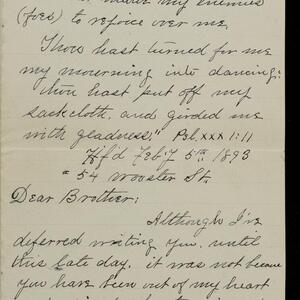 made my enemies
(foes) to rejoice over me
Thou hast turned for me
my mourning into dancing:
thou hast put off my
sackcloth, and girded me
with gladness." Psl. xxx 1:11
Hf'd Feb'y 5th 1893
" 54 Wooster St.
Dear Brother;
Although I've
deferred writing you, until
this late day, it was not because
you have been out of my heart